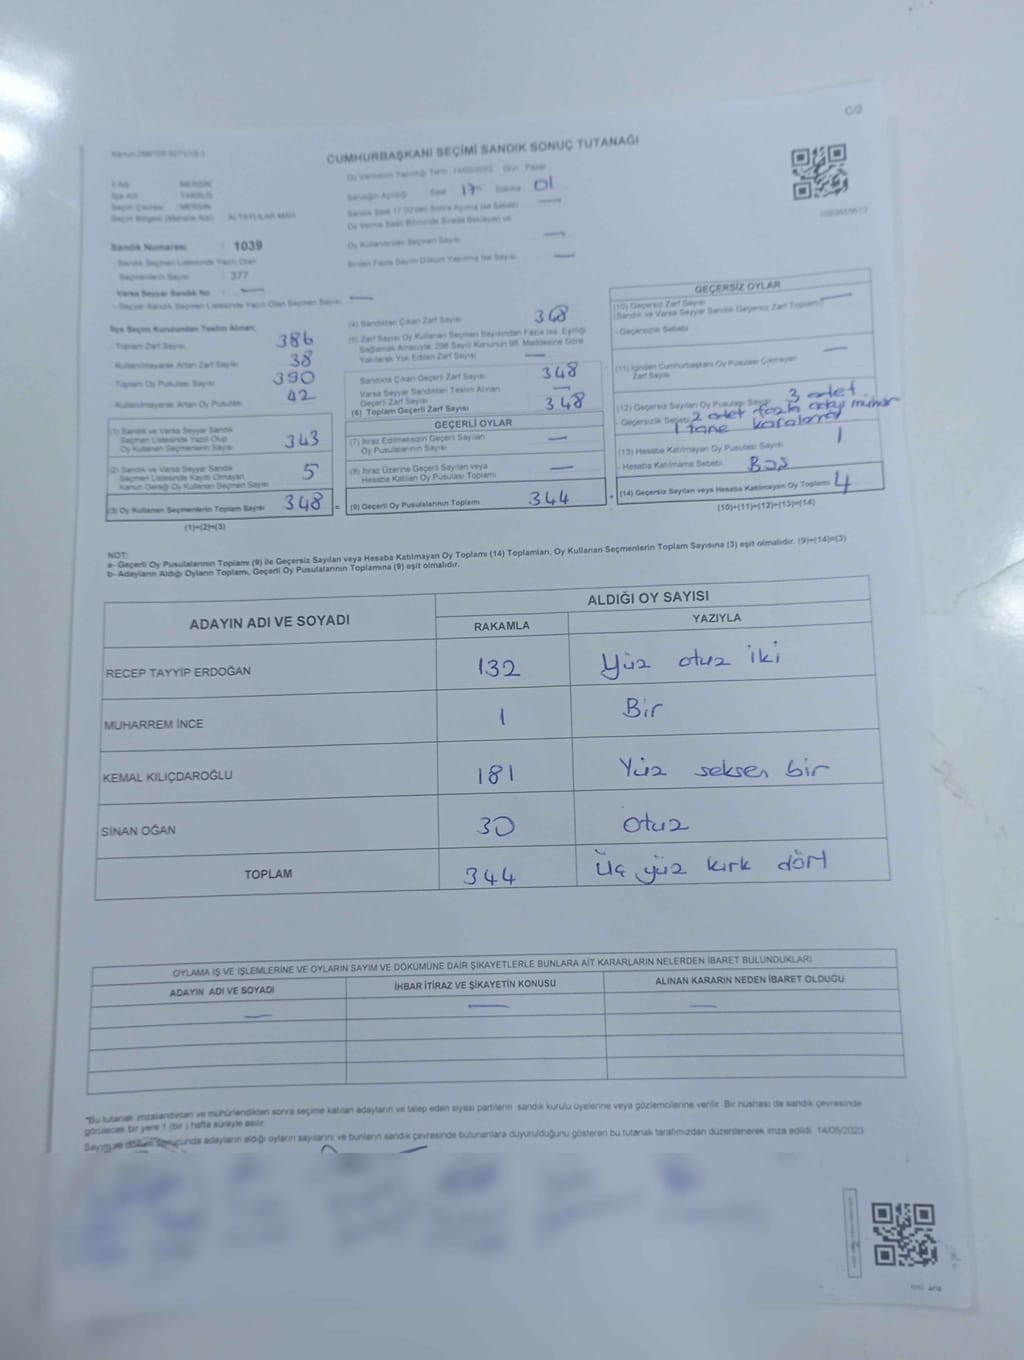 C/2
CUMHURBAŞKANI SEÇİMİ SANDIK SONUÇ TUTANAĞI
Oy Vermenin Yapıldığı Tarih 14/05/2023 Gün Pazar
İl Adı MERSİN
İlçe Adı TARSUS
Seçim Çevresi MERSİN
Sandığın Açıldığı Saat 17 Dakika 01
Sandık Numarası : 1039
Sandık Seçmen Listesinde Yazılı Olan
Seçmenlerin Sayısı : 377
Varsa Seyyar Sandık No : —
- Seyyar Sandık Seçmen Listesinde Yazılı Olan Seçmen Sayısı —
Oy Kullandırılan Seçmen Sayısı —
Birden Fazla Sayım Döküm Yapılmış İse Sayısı —
İlçe Seçim Kurulundan Teslim Alınan;
- Toplam Zarf Sayısı 386
- Kullanılmayarak Artan Zarf Sayısı 38
- Toplam Oy Pusulası Sayısı 390
- Kullanılmayarak Artan Oy Pusulası 42
(1) Sandık ve Varsa Seyyar Sandık
Seçmen Listesinde Yazılı Olup
Oy Kullanan Seçmenlerin Sayısı 343
(2) Sandık ve Varsa Seyyar Sandık
Seçmen Listesinde Kayıtlı Olmayan
Kanun Gereği Oy Kullanan Seçmen Sayısı 5
(3) Oy Kullanan Seçmenlerin Toplam Sayısı 348 =
(1)+(2)=(3)
(4) Sandıktan Çıkan Zarf Sayısı 348
(5) Zarf Sayısı Oy Kullanan Seçmen Sayısından Fazla İse, Eşitliği
Sağlamak Amacıyla; 298 Sayılı Kanunun 98. Maddesine Göre
Yakılarak Yok Edilen Zarf Sayısı —
Sandıkta Çıkan Geçerli Zarf Sayısı 348
Varsa Seyyar Sandıktan Teslim Alınan
Geçerli Zarf Sayısı —
(6) Toplam Geçerli Zarf Sayısı 348
GEÇERLİ OYLAR
(7) İtiraz Edilmeksizin Geçerli Sayılan
Oy Pusulalarının Sayısı —
(8) İtiraz Üzerine Geçerli Sayılan veya
Hesaba Katılan Oy Pusulası Toplamı —
(9) Geçerli Oy Pusulalarının Toplamı 344 +
GEÇERSİZ OYLAR
(10) Geçersiz Zarf Sayısı
(Sandık ve Varsa Seyyar Sandık Geçersiz Zarf Toplamı) —
- Geçersizlik Sebebi
(11) İçinden Cumhurbaşkanı Oy Pusulası Çıkmayan
Zarf Sayısı —
(12) Geçersiz Sayılan Oy Pusulası Sayısı 3 adet
- Geçersizlik Sebebi 2 adet fazla aday mühür
1 tane karalama
(13) Hesaba Katılmayan Oy Pusulası Sayısı 1
- Hesaba Katılmama Sebebi Boş
(14) Geçersiz Sayılan veya Hesaba Katılmayan Oy Toplamı 4
(10)+(11)+(12)+(13)=(14)
NOT:
a- Geçerli Oy Pusulalarının Toplamı (9) ile Geçersiz Sayılan veya Hesaba Katılmayan Oy Toplamı (14) Toplamları, Oy Kullanan Seçmenlerin Toplam Sayısına (3) eşit olmalıdır. (9)+(14)=(3)
b- Adayların Aldığı Oyların Toplamı, Geçerli Oy Pusulalarının Toplamına (9) eşit olmalıdır.
ADAYIN ADI VE SOYADI ALDIĞI OY SAYISI
RAKAMLA YAZIYLA
RECEP TAYYİP ERDOĞAN 132 Yüz otuz iki
MUHARREM İNCE 1 Bir
KEMAL KILIÇDAROĞLU 181 Yüz seksen bir
SİNAN OĞAN 30 Otuz
TOPLAM 344 Üç yüz kırk dört
OYLAMA İŞ VE İŞLEMLERİNE VE OYLARIN SAYIM VE DÖKÜMÜNE DAİR ŞİKAYETLERLE BUNLARA AİT KARARLARIN NELERDEN İBARET BULUNDUKLARI
ADAYIN ADI VE SOYADI İHBAR İTİRAZ VE ŞİKAYETİN KONUSU ALINAN KARARIN NEDEN İBARET OLDUĞU
— — —
*Bu tutanak imzalandıktan ve mühürlendikten sonra seçime katılan adayların ve talep eden siyasi partilerin sandık kurulu üyelerine veya gözlemcilerine verilir. Bir nüshası da sandık çevresinde
görülecek bir yere 1 (bir) hafta süreyle asılır.
Sayım ve döküm sonucunda adayların aldığı oyların sayılarını ve bunların sandık çevresinde bulunanlara duyurulduğunu gösteren bu tutanak tarafımızdan düzenlenerek imza edildi. 14/05/2023